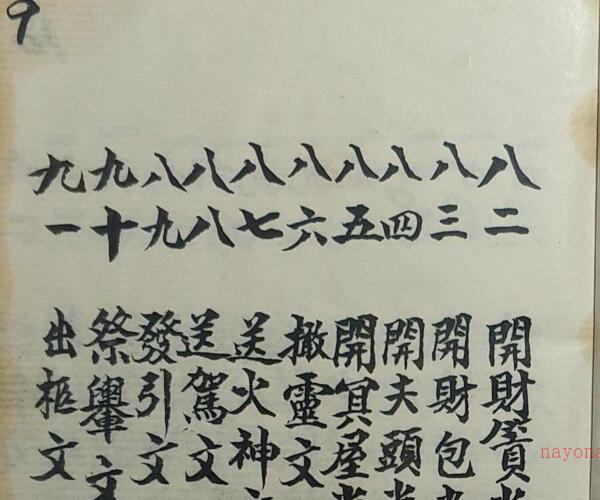 9
八二 開財簣光
八三 開財包光
八四 開夫頭光
八五 開冥屋光
八六 撤靈文
八七 送火神文
八八 送駕文
八九 發引文
九十 祭轝文
九一 出柩文
nayona